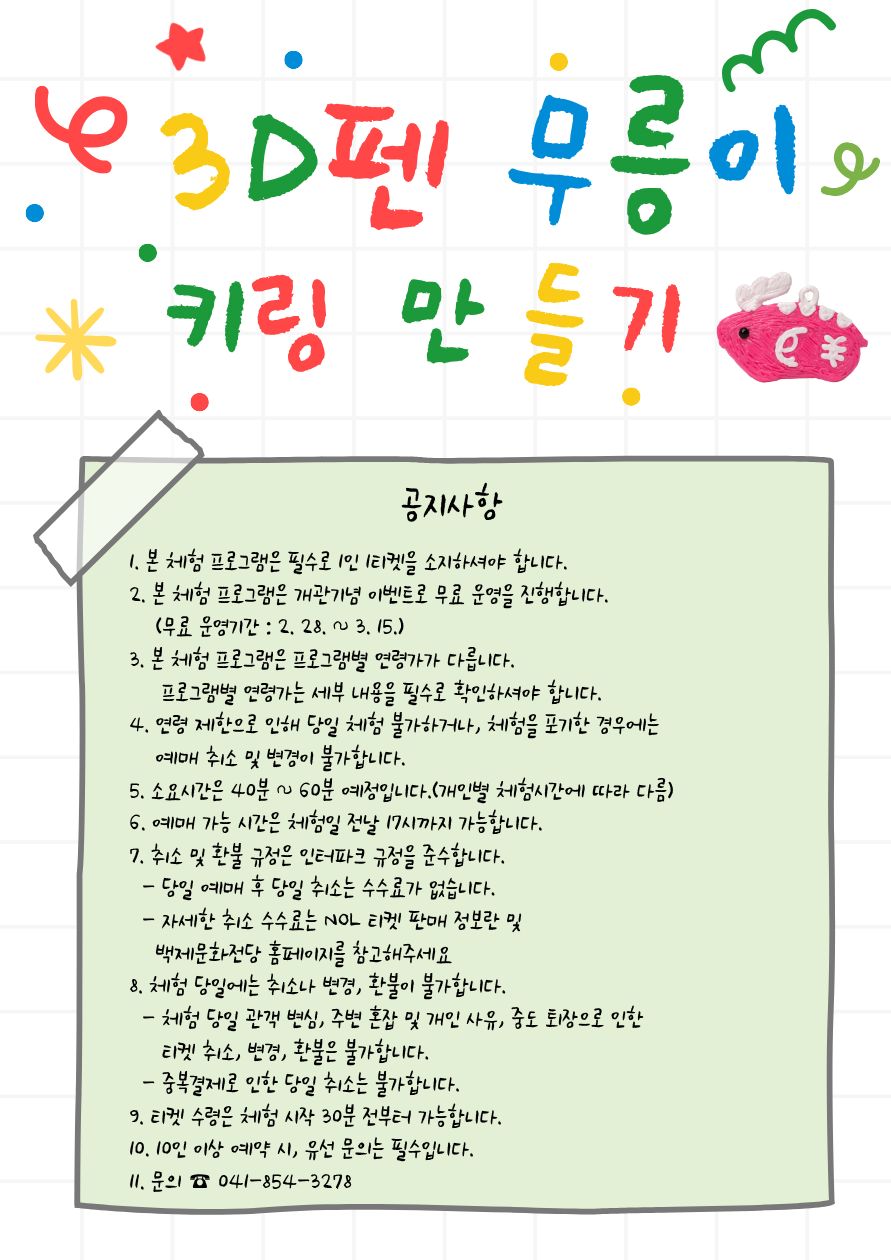 3D펜 무릉이
키링 만들기
공지사항
1. 본 체험 프로그램은 필수로 1인 1티켓을 소지하셔야 합니다.
2. 본 체험 프로그램은 개관기념 이벤트로 무료 운영을 진행합니다.
(무료 운영기간 : 2. 28. ~ 3. 15.)
3. 본 체험 프로그램은 프로그램별 연령가가 다릅니다.
프로그램별 연령가는 세부 내용을 필수로 확인하셔야 합니다.
4. 연령 제한으로 인해 당일 체험 불가하거나, 체험을 포기한 경우에는
예매 취소 및 변경이 불가합니다.
5. 소요시간은 40분 ~ 60분 예정입니다.(개인별 체험시간에 따라 다름)
6. 예매 가능 시간은 체험일 전날 17시까지 가능합니다.
7. 취소 및 환불 규정은 인터파크 규정을 준수합니다.
- 당일 예매 후 당일 취소는 수수료가 없습니다.
- 자세한 취소 수수료는 NOL 티켓 판매 정보란 및
백제문화전당 홈페이지를 참고해주세요
8. 체험 당일에는 취소나 변경, 환불이 불가합니다.
- 체험 당일 관객 변심, 주변 혼잡 및 개인 사유, 중도 퇴장으로 인한
티켓 취소, 변경, 환불은 불가합니다.
- 중복결제로 인한 당일 취소는 불가합니다.
9. 티켓 수령은 체험 시작 30분 전부터 가능합니다.
10. 10인 이상 예약 시, 유선 문의는 필수입니다.
11. 문의 ☎ 041-854-3278